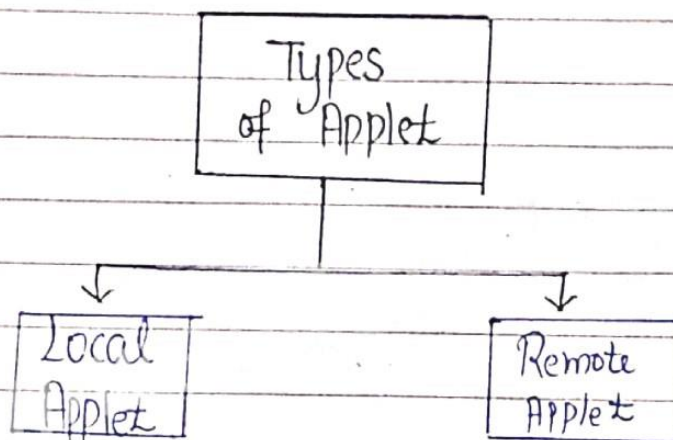 Types
of Applet
Local
Applet
Remote
Applet